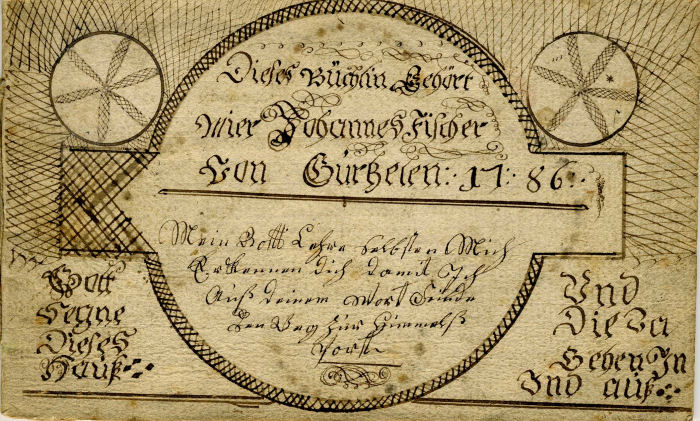 Dieses Büchlin Gehört
Mier Johannes Fischer
Von Gürtzelen: 17: 86:
Mein Gott Lehre selbsten Mich
Erkennen dich damit Ich
Auß deinem Wort Finde
Den Weg zur Himmelß
Port
Gott
Segne
Dieses
Hauß
Und
Die Da
Gehen In
Und auß